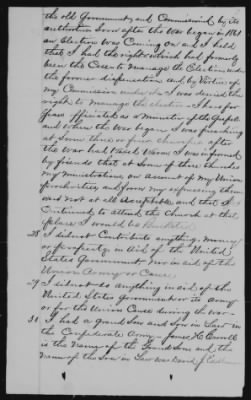 the old Government, and Commissioned by its
authorities Soon after the War began in 1861
an Election was Coming on and I held
that I had the right which had formerly
been the Case to manage the Election under
the former dispensation, and by Virtue of
my Commission under it. I was denied the
right to manage the election - I have for
years officiated as a Minister of the Gospel
and when the War began I was preaching
at some three or four churches after
the War had raged I was informed
by friends that at Some of those churches
my ministrations, on account of my Union
proclivities, and from my expressing them
was not at all acceptable and that if I
Continued to attend the Church at that
place I would be
28 I did not Contribute anything, money
or property in aid of the United
States Government nor in aid of the
Union Army or Cause
29 I did not do anything in aid of the
United States Government or its Army
or for the Union Cause during the War -
30 I had a grand Son and Son in Law in
the Confederate Army - James H.
is the Name of the Grand Son and the
Name of the Son in Law was David J.